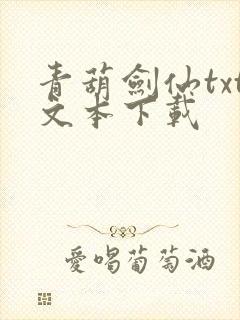 青葫劍仙txt
文本下載
愛喝葡萄酒